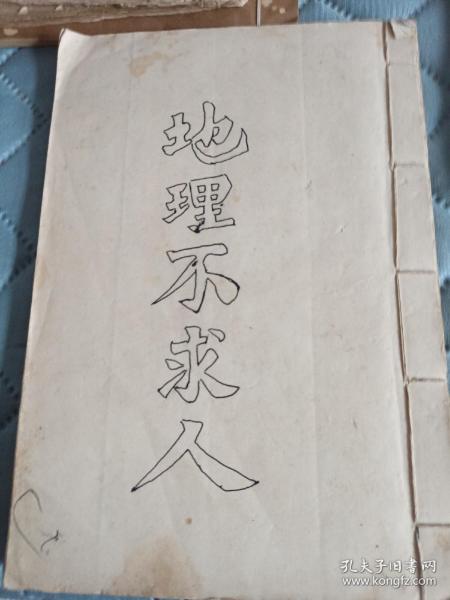 地理不求人
孔夫子旧书网
www.kongfz.com